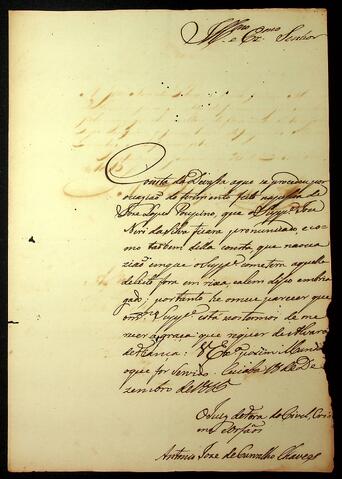 Illmo e Exmo Senhor
Consta da Devassa aque se procedeu por
occazião do ferimento feito na pessoa de
José Lopes, que o Suppe José
Neri da Silva ficou pronunciado e co-
mo tambem della consta, que naocca-
zião emque o Suppe cometeu aquele
delicto fora em rixa, e alem disso embria
gado; portanto he omeu parecer que
o Suppe está nos termos de me-
recer a graça que requer de Alvará
de Fiança: V Exa porem Mandará
oque for Servido. Cuiabá 13 de De-
zembro de
O Juiz de Fora do Civel, Cri-
me e Orfãos
Antonio José de Carvalho Chaves